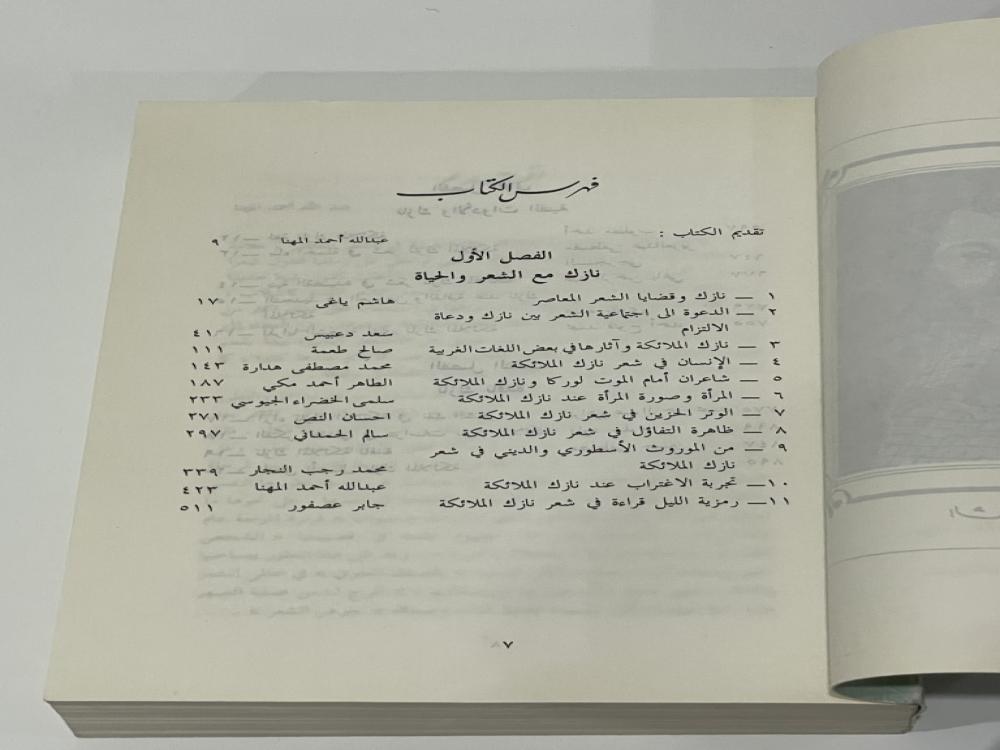 فهرس الكتاب
تقديم الكتاب : عبدالله أحمد المهنا ٩
الفصل الأول
نازك مع الشعر والحياة
١ ــ نازك وقضايا الشعر المعاصر هاشم ياغي ١٧
٢ ــ الدعوة الى اجتماعية الشعر بين نازك ودعاة
الالتزام سعد دعبيس ٤١
٣ ــ نازك الملائكة وآثارها في بعض اللغات الغربية صالح طعمة ١١١
٤ ــ الإنسان في شعر نازك الملائكة محمد مصطفى هدارة ١٤٣
٥ ــ شاعران أمام الموت لوركا ونازك الملائكة الطاهر أحمد مكي ١٨٧
٦ ــ المرأة وصورة المرأة عند نازك الملائكة سلمى الخضراء الجيوسي ٢٣٣
٧ ــ الوتر الحزين في شعر نازك الملائكة احسان النص ٢٧١
٨ ــ ظاهرة التفاؤل في شعر نازك الملائكة سالم الحمداني ٢٩٧
٩ ــ من الموروث الأسطوري والديني في شعر
نازك الملائكة محمد رجب النجار ٣٣٩
١٠ــ تجربة الاغتراب عند نازك الملائكة عبدالله أحمد المهنا ٤٢٣
١١ــ رمزية الليل قراءة في شعر نازك الملائكة جابر عصفور ٥١١
٧